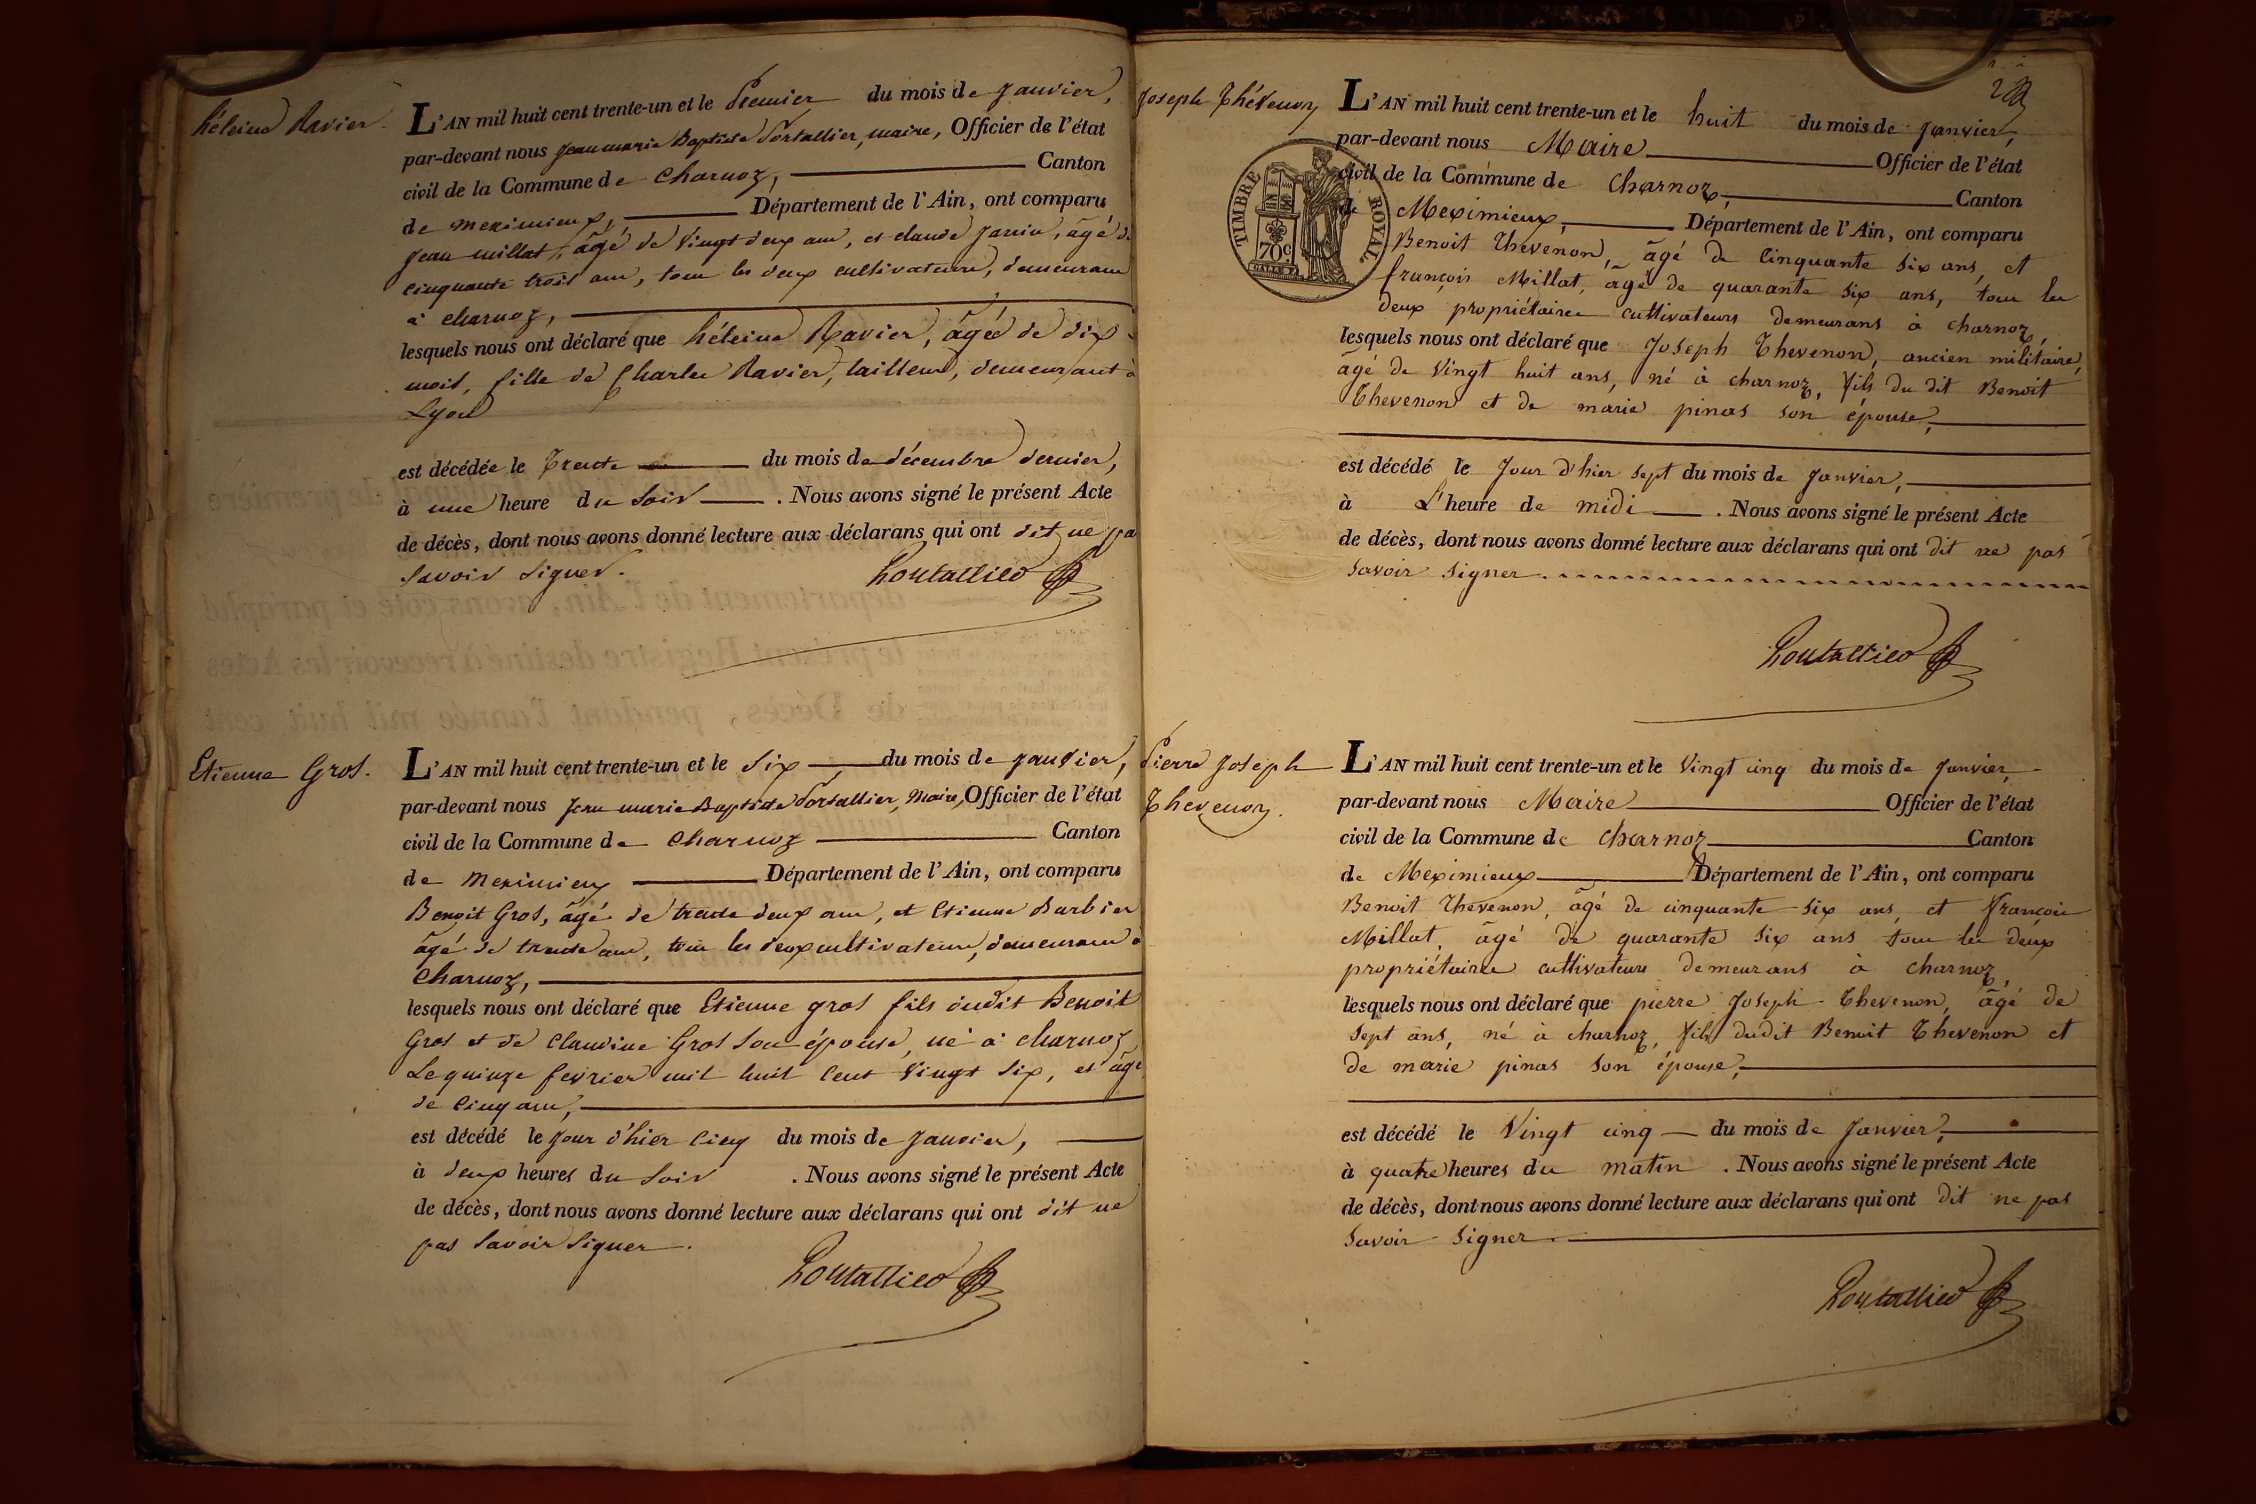 héleine Ravier.
L'AN mil huit cent trente-un et le Premier du mois de Janvier,
par-devant nous Jean marie Baptiste Portallier, maire, Officier de l'état
civil de la Commune de Charnoz, Canton
de meximieux, Département de l'Ain, ont comparu
Jean millat, âgé de vingt deux ans, et claude Janin, âgé de
cinquante trois ans, tous les deux cultivateurs, demeurans
à charnoz,
lesquels nous ont déclaré que héleine Ravier, âgée de dix
mois, fille de Charles Ravier, tailleur, demeurant à
Lyon
est décédée le Trente du mois de décembre dernier,
à une heure du Soir . Nous avons signé le présent Acte
de décès, dont nous avons donné lecture aux déclarans qui ont dit ne pa
savoir signer.
Portallier
Etienne Gros.
L'AN mil huit cent trente-un et le Six du mois de Janvier,
par-devant nous Jean marie Baptiste Portallier, Maire, Officier de l'état
civil de la Commune de Charnoz Canton
de meximieux Département de l'Ain, ont comparu
Benoit Gros, âgé de trente deux ans, et Etienne Barbier
âgé de trente ans, tous les deux cultivateurs, demeurans à
Charnoz,
lesquels nous ont déclaré que Etienne gros fils dudit Benoit
Gros et de Claudine Gros son épouse, né à charnoz
Le quinze fevrier mil huit cent vingt six, et âgé
de cinq ans,
est décédé le jour d'hier cinq du mois de Janvier,
à deux heures du Soir . Nous avons signé le présent Acte
de décès, dont nous avons donné lecture aux déclarans qui ont dit ne
pas savoir signer.
Portallier
2
Joseph Thévenon
TIMBRE ROYAL
70c
L'AN mil huit cent trente-un et le huit du mois de Janvier,
par-devant nous Maire Officier de l'état
civil de la Commune de Charnoz, Canton
de Meximieux, Département de l'Ain, ont comparu
Benoit Thevenon, âgé de Cinquante six ans, et
françois Millat, âgé de quarante six ans, tous les
deux propriétaires cultivateurs demeurans à charnoz,
lesquels nous ont déclaré que Joseph Thevenon, ancien militaire,
âgé de vingt huit ans, né à charnoz, fils du dit Benoit
Thevenon et de marie pinas son épouse,
est décédé le Jour d'hier sept du mois de Janvier,
à L'heure de midi . Nous avons signé le présent Acte
de décès, dont nous avons donné lecture aux déclarans qui ont dit ne pas
savoir signer.
Portallier
Pierre Joseph
Thevenon.
L'AN mil huit cent trente-un et le Vingt cinq du mois de Janvier,
par-devant nous Maire Officier de l'état
civil de la Commune de Charnoz Canton
de Meximieux Département de l'Ain, ont comparu
Benoit Thevenon, âgé de cinquante six ans, et françois
Millat, âgé de quarante six ans tous les deux
propriétaires cultivateurs demeurans à charnoz,
lesquels nous ont déclaré que pierre Joseph Thevenon, âgé de
sept ans, né à charnoz, fils dudit Benoit Thevenon et
de marie pinas son épouse,
est décédé le Vingt cinq du mois de Janvier,
à quatre heures du matin . Nous avons signé le présent Acte
de décès, dont nous avons donné lecture aux déclarans qui ont dit ne pas
savoir signer.
Portallier